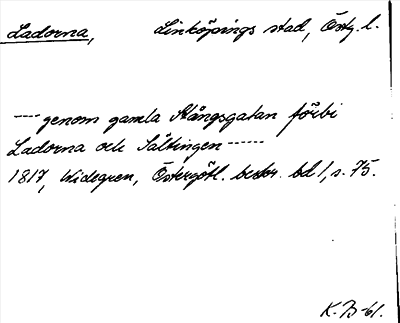 Ladorna, Linköpings stad, Östg. l.
---- genom gamla Stångsgatan förbi
Ladorna och Sältingen ------
1817, Widegren, Östergötl. beskr. bd 1, s. 75.
K. B-61.